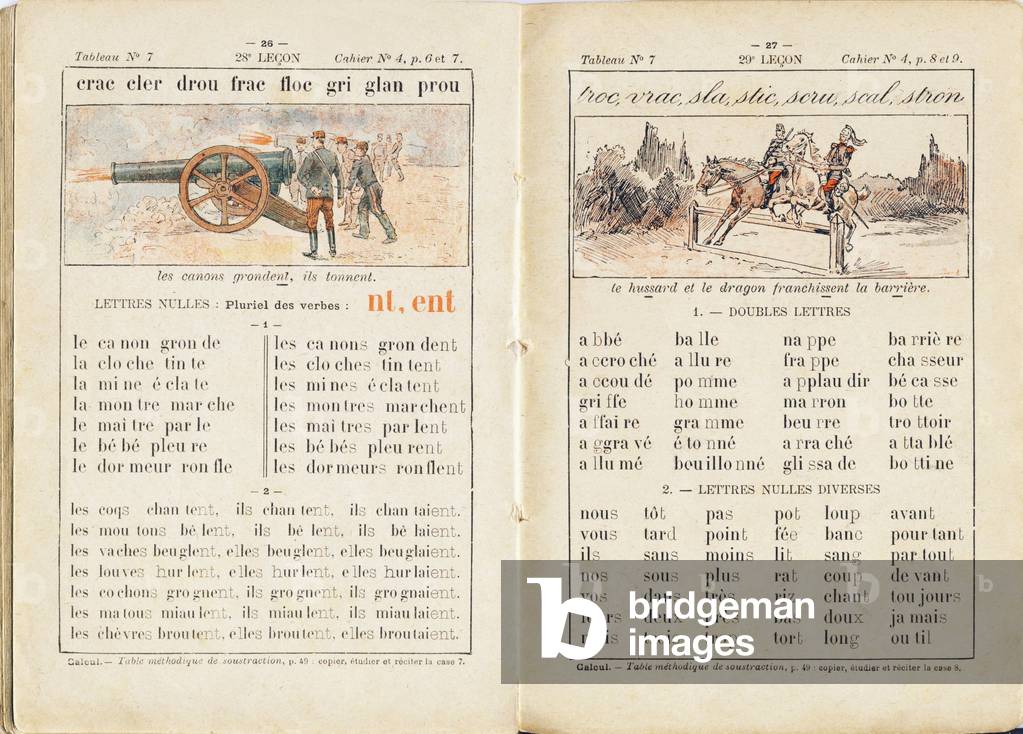 — 26 —
Tableau Nº 7 28ᵉ LEÇON Cahier Nº 4, p. 6 et 7.
crac cler drou frac floc gri glan prou
les canons grondent, ils tonnent.
LETTRES NULLES : Pluriel des verbes : nt, ent
— 1 —
le ca non gron de les ca nons gron dent
la clo che tin te les clo ches tin tent
la mi ne é cla te les mi nes é cla tent
la mon tre mar che les mon tres mar chent
le mai tre par le les mai tres par lent
le bé bé pleu re les bé bés pleu rent
le dor meur ron fle les dor meurs ron flent
— 2 —
les coqs chan tent, ils chan tent, ils chan taient.
les mou tons bê lent, ils bê lent, ils bê laient.
les vaches beu glent, elles beu glent, elles beu glaient.
les louves hur lent, elles hur lent, elles hur laient.
les co chons gro gnent, ils gro gnent, ils gro gnaient.
les ma tous miau lent, ils miau lent, ils miau laient.
les chèvres brou tent, elles brou tent, elles brou taient.
Calcul. — Table méthodique de soustraction, p. 49 : copier, étudier et réciter la case 7.
— 27 —
Tableau Nº 7 29ᵉ LEÇON Cahier Nº 4, p. 8 et 9.
troc, vrac, sla, stic, scru, scal, stron
le hussard et le dragon franchissent la barrière.
1. — DOUBLES LETTRES
a bbé ba lle na ppe ba rriè re
a ccro ché a llu re fra ppe cha sseur
a ccou dé po mme a pplau dir bé ca sse
gri ffe ho mme ma rron bo tte
a ffai re gra mme beu rre tro ttoir
a ggra vé é to nné a rra ché a tta blé
a llu mé bou illo nné gli ssa de bo tti ne
2. — LETTRES NULLES DIVERSES
nous tôt pas pot loup avant
vous tard point fée banc pour tant
ils sans moins lit sang par tout
nos sous plus rat coup de vant
vos dans très riz chant tou jours
deux bas doux ja mais
tort long ou til
Calcul. — Table méthodique de soustraction, p. 49 : copier, étudier et réciter la case 8.
b bridgeman
images